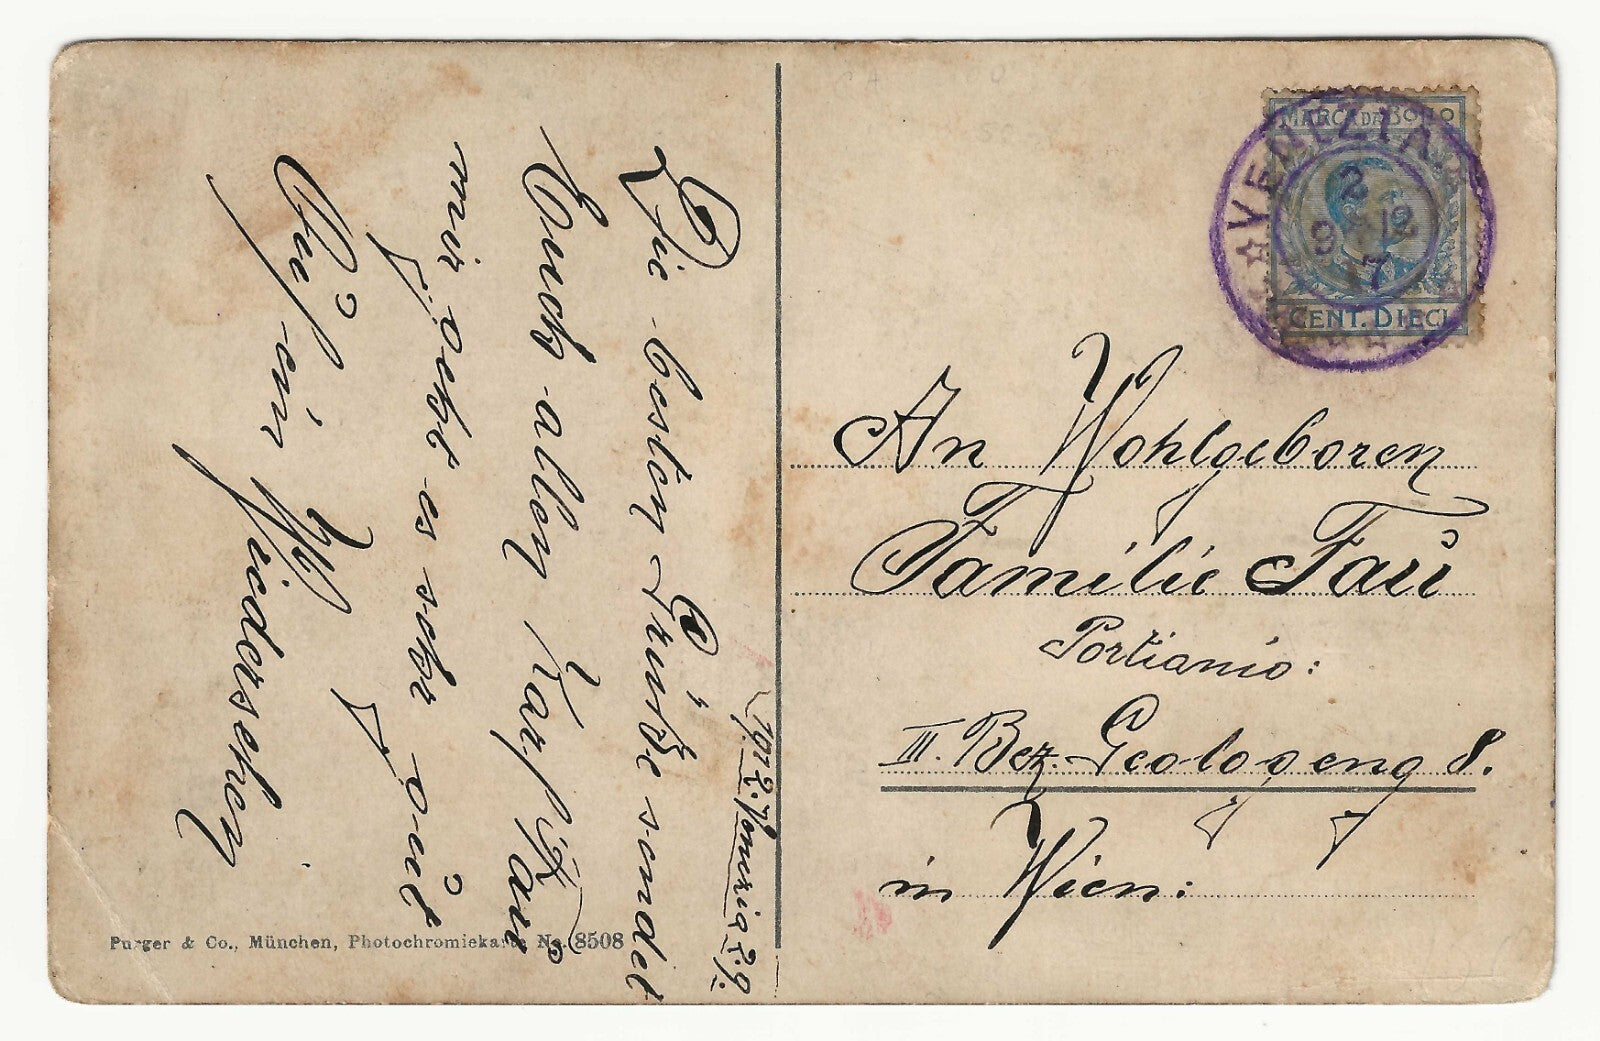 1912. Venezia 2.9.
Die besten Grüße sendet
Euch allen Karl Faü
mir geht es sehr gut
Auf ein Wiedersehen
Purger & Co., München, Photochromiekarte No. 8508
MARCA DA BOLLO
CENT. DIECI
VENEZIA
2
9 12
7
An Wohlgeboren
Familie Faü
III. Bez. Geologeng 8.
in Wien: